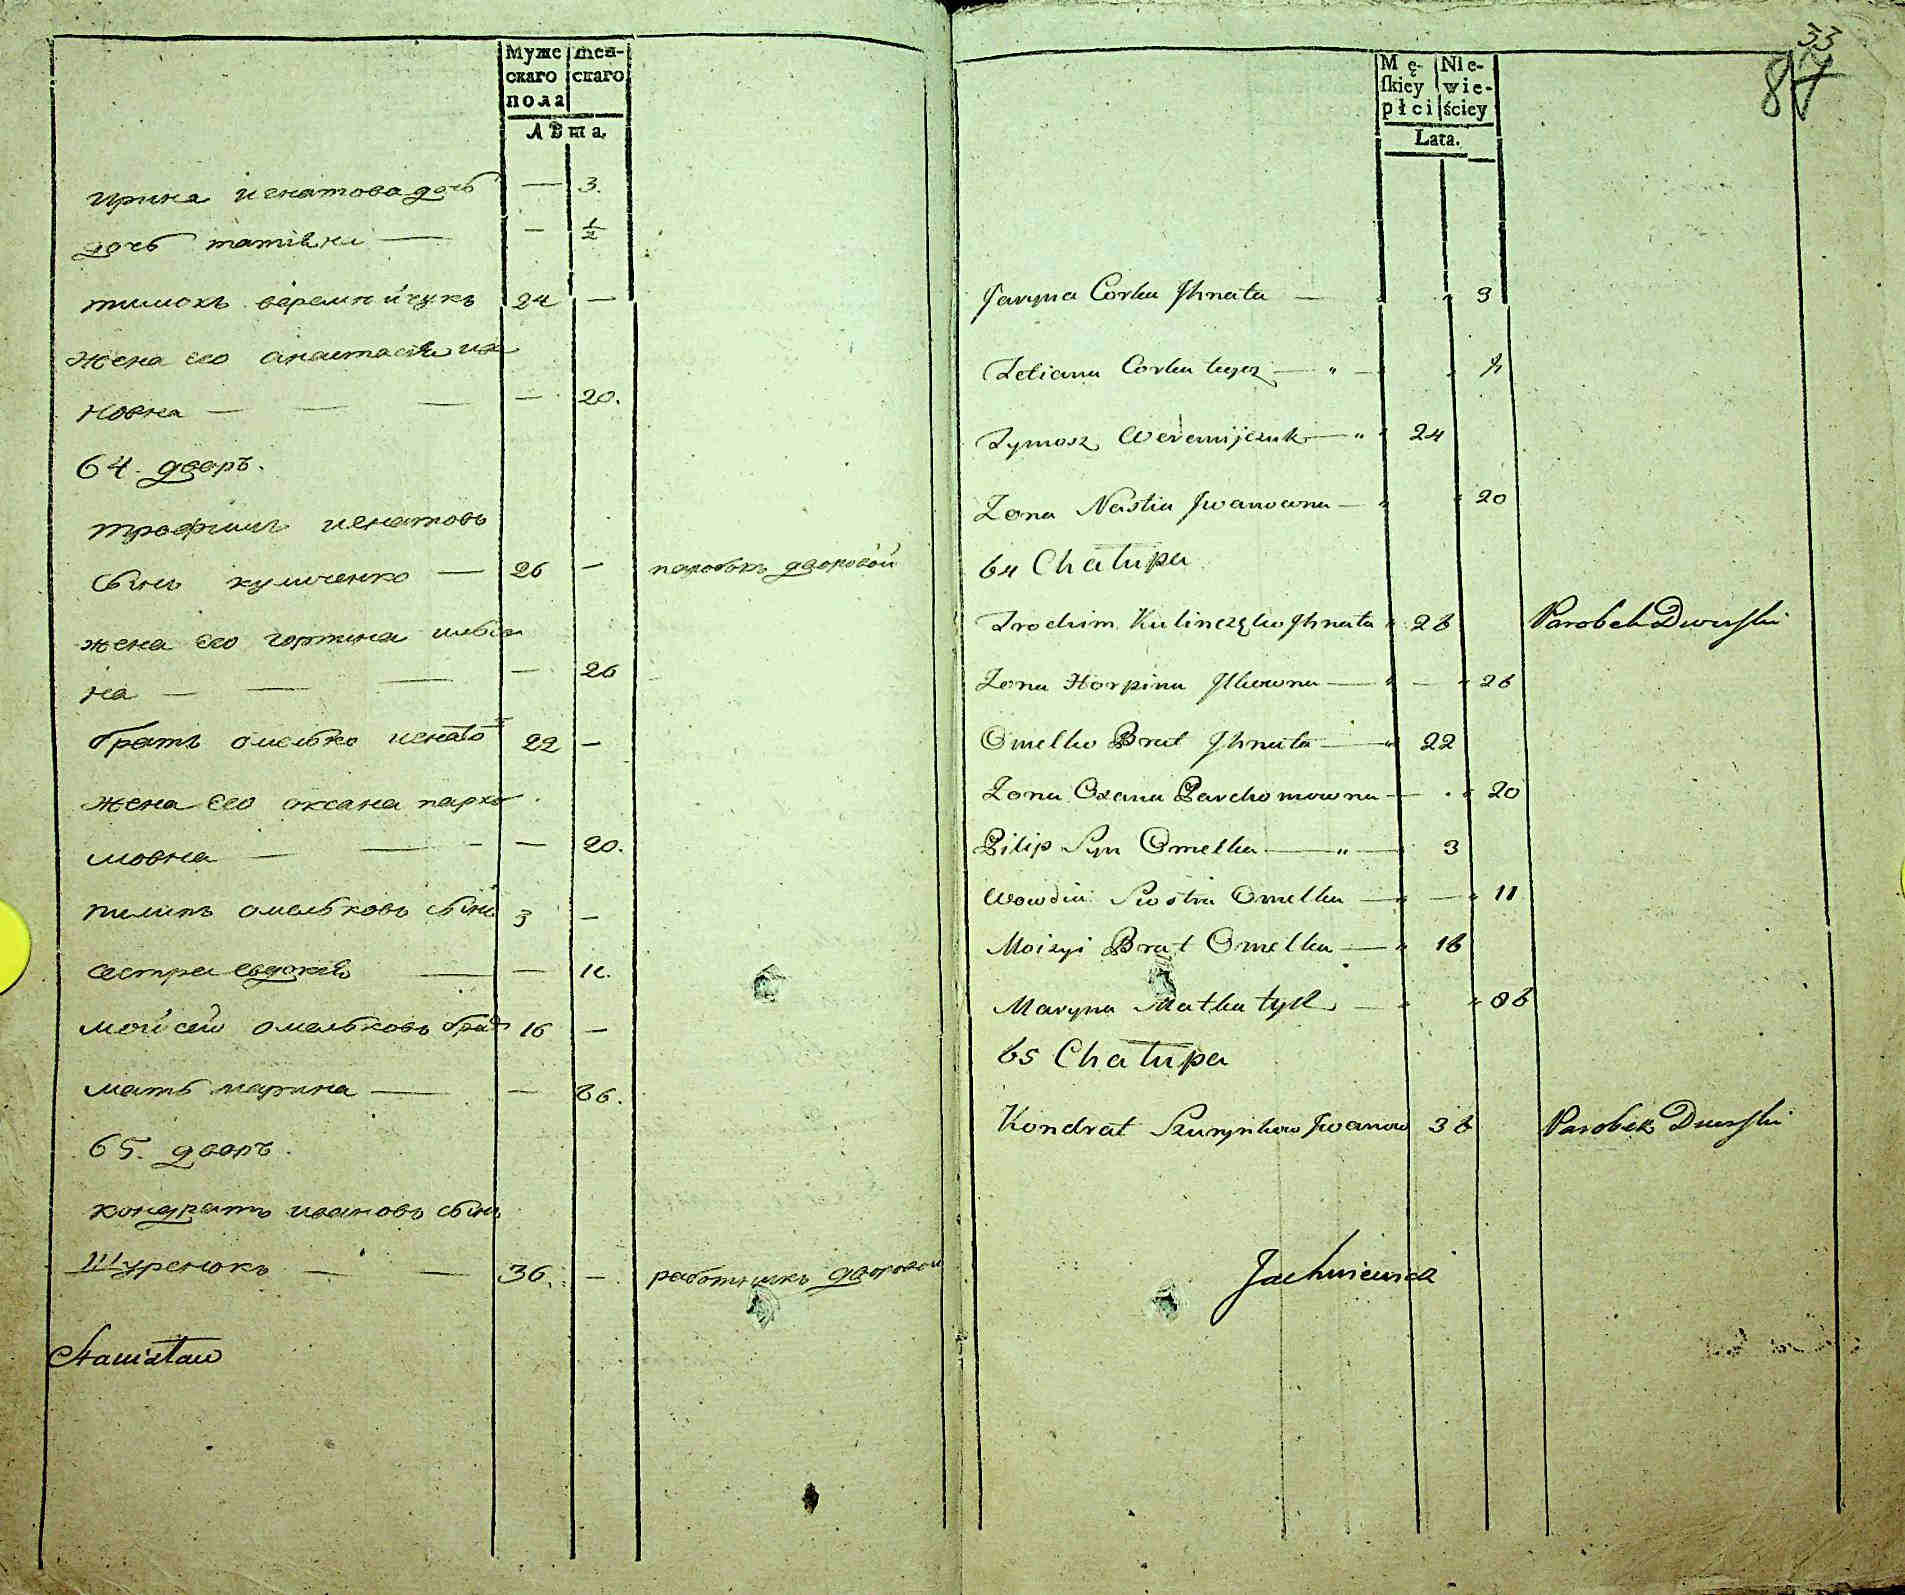 Муже скаго пола
Жен- скаго
Лѣта.
ирина игнатова дочь — 3.
дочь татіяна — — ½
тимохъ веремѣйчукъ 24 —
жена его анастасія ива
новна — — — — 20.
64. дворъ.
трофимъ игнатовъ
сынъ куличенко — 26 — паробокъ дворовой
жена его горпина илви
на — — — — 26
братъ омелько игнато 22 —
жена его оксана пархо
мовна — — — — 20.
пилипъ омельковъ сынъ 3 —
сестра евдокія — — 11.
мойсей омельковъ братъ 16 —
мать марина — — 86.
65. дворъ.
кондратъ ивановъ сынъ
Шуренокъ — — 36. — работникъ дворовой
Stanisław
33
87
Mę- skiey płci
Nie- wie- ściey
Lata.
Jaryna Corka Jhnata — 3
Tetiana Corka tegoz — " — ½
Tymosz Weremijczuk — " 24
Zona Nastia Jwanowna — " " 20
64 Chałupa
Trochim Kulinczęko Jhnata " 26 Parobek Dwurski
Zona Horpina Jlkowna — " — " 26
Omelko Brat Jhnata — " 22
Zona Oxana Parchomowna — " " 20
Pilip Syn Omelka — " — 3
Wowdia Siostra Omelka — " — " 11
Moizyi Brat Omelka — " 16
Maryna Matka tych — " " 86
65 Chałupa
Kondrat Szurynkow Jwanow 36 Parobek Dwurski
Jachniewicz